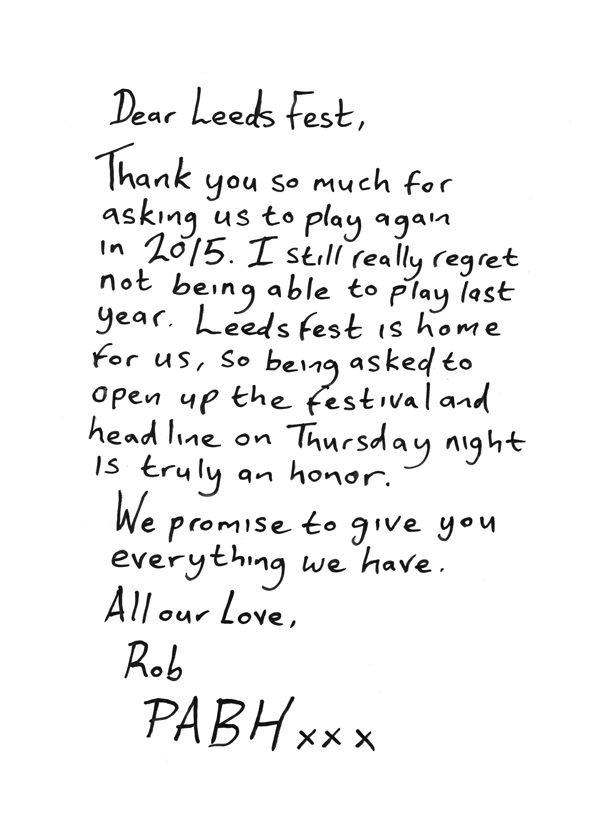 Dear Leeds Fest,
Thank you so much for
asking us to play again
in 2015. I still really regret
not being able to play last
year. Leeds fest is home
for us, so being asked to
open up the festival and
headline on Thursday night
is truly an honor.
We promise to give you
everything we have.
All our Love,
Rob
PABH xxx